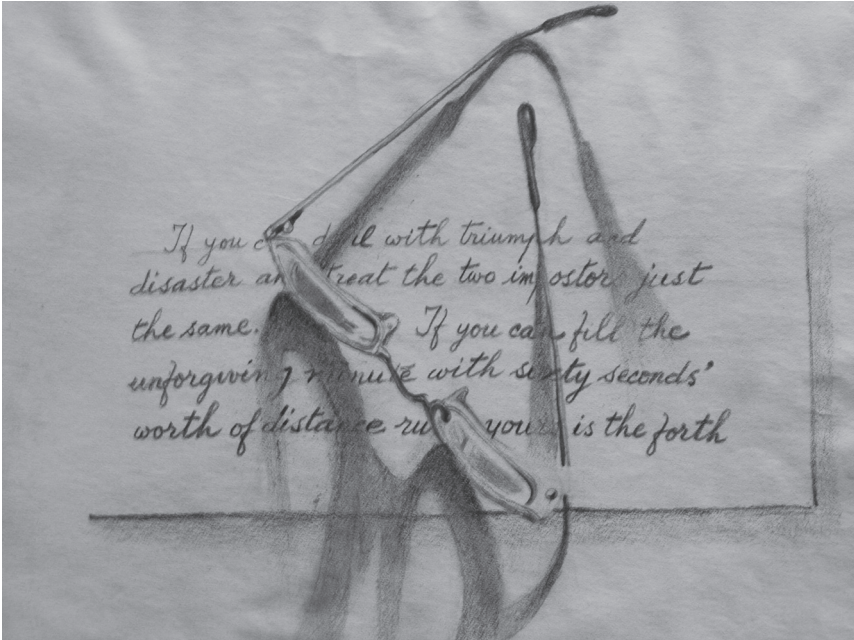 If you can deal with triumph and
disaster and treat the two impostors just
the same. If you can fill the
unforgiving minute with sixty seconds'
worth of distance run yours is the forth